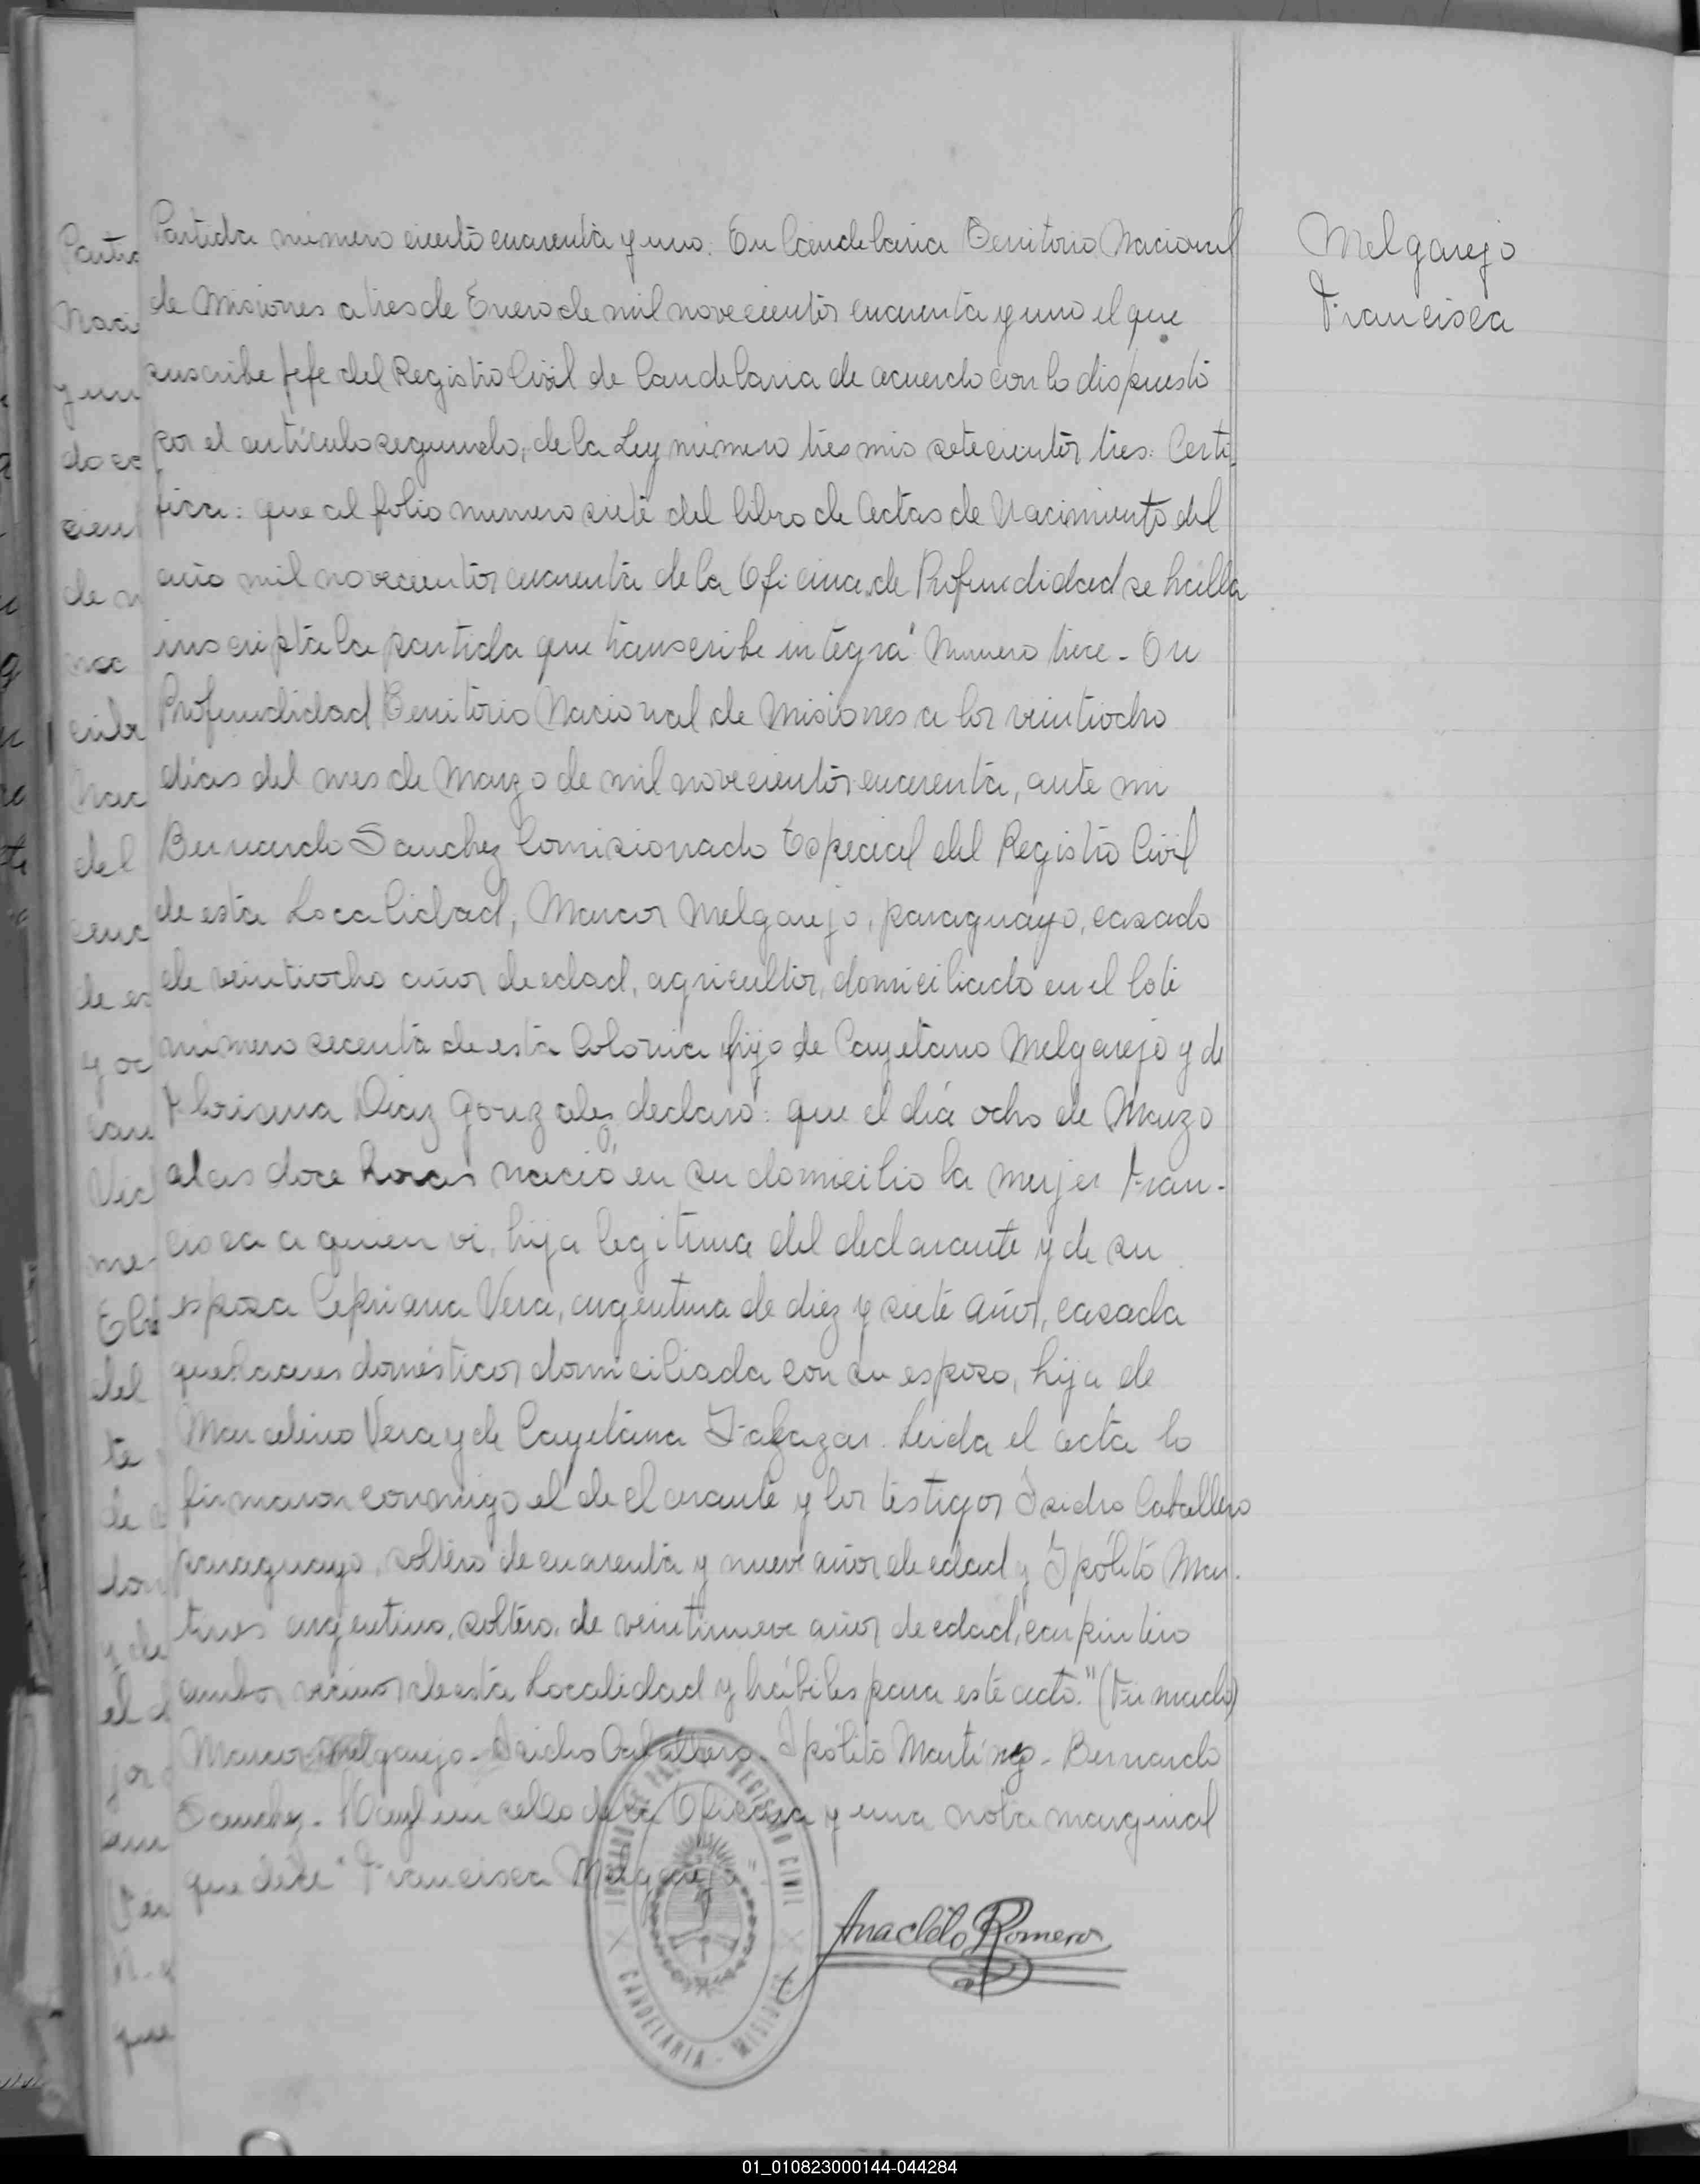 Partida número ciento cuarenta y uno. En Candelaria Territorio Nacional
de Misiones a tres de Enero de mil novecientos cuarenta y uno el que
suscribe Jefe del Registro Civil de Candelaria de acuerdo con lo dispuesto
por el artículo segundo, de la Ley número tres mis setecientos tres: Certi-
fica: que al folio numero siete del libro de Actas de Nacimiento del
año mil novecientos cuarenta de la Oficina de Profundidad se halla
inscripta la partida que transcribe integra "Numero trece - En
Profundidad Territorio Nacional de Misiones a los veintiocho
días del mes de Marzo de mil novecientos cuarenta, ante mi
Bernardo Sanchez Comisionado Especial del Registro Civil
de esta Localidad, Marcos Melgarejo, paraguayo, casado
de veintiocho años de edad, agricultor, domiciliado en el lote
número secenta de esta Colonia hijo de Cayetano Melgarejo y de
Floriana Diaz Gonzales, declaró: que el día ocho de Marzo
a las doce horas nació en su domicilio la mujer Fran-
cisca a quien vi, hija legitima del declarante y de su
esposa Cipriana Vera, argentina de diez y siete años, casada
quehaceres domésticos domiciliada con su esposo, hija de
Marcelino Vera y de Cayetana Leida el acta lo
firmaron conmigo el declarante y los testigos Isidro Caballero
paraguayo, soltero de cuarenta y nueve años de edad y Ipólito Mar-
tines argentino, soltero, de veintinueve años de edad, carpintero
ambos vecinos de esta Localidad y hábiles para este acto." (Firmado)
Marcos Melgarejo - Isidro Caballero - Ipólito Martínez - Bernardo
Sanchez - Hay un sello de la Oficina y una nota marginal
que dice "Francisca Melgarejo"
Anacleto Romero
REGISTRO CIVIL
CANDELARIA - MISIONES
Melgarejo
Francisca
01_010823000144-044284